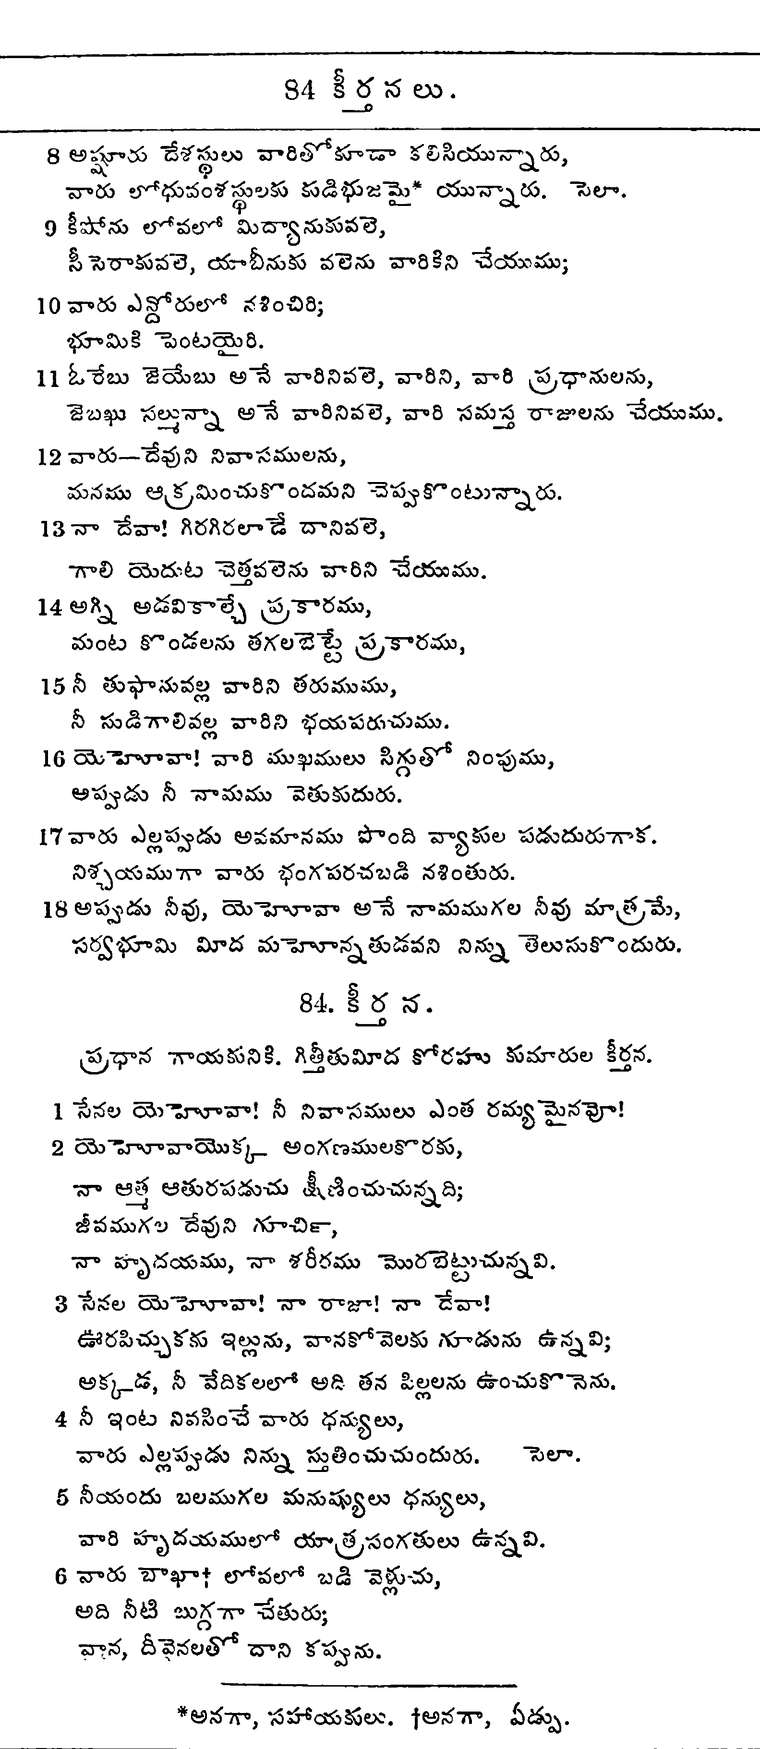 84 కీర్తనలు.
8 అష్షూరు దేశస్థులు వారితోకూడా కలిసియున్నారు,
వారు లోధువంశస్థులకు కుడిభుజమై* యున్నారు. సెలా.
9 కీషోను లోవలో మిద్యానుకువలె,
సీసెరాకువలె, యాబీనుకు వలెను వారికిని చేయుము;
10 వారు ఎన్దోరులో నశించిరి;
భూమికి పెంటయైరి.
11 ఓరేబు జెయేబు అనే వారినివలె, వారిని, వారి ప్రధానులను,
జెబఖు సల్మున్నా అనే వారినివలె, వారి సమస్త రాజులను చేయుము.
12 వారు—దేవుని నివాసములను,
మనము ఆక్రమించుకొందమని చెప్పుకొంటున్నారు.
13 నా దేవా! గిరగిరలాడే దానివలె,
గాలి యెదుట చెత్తవలెను వారిని చేయుము.
14 అగ్ని అడవికాల్చే ప్రకారము,
మంట కొండలను తగలబెట్టే ప్రకారము,
15 నీ తుఫానువల్ల వారిని తరుముము,
నీ సుడిగాలివల్ల వారిని భయపరుచుము.
16 యెహెూవా! వారి ముఖములు సిగ్గుతో నింపుము,
అప్పుడు నీ నామము వెతుకుదురు.
17 వారు ఎల్లప్పుడు అవమానము పొంది వ్యాకుల పడుదురుగాక.
నిశ్చయముగా వారు భంగపరచబడి నశింతురు.
18 అప్పుడు నీవు, యెహెూవా అనే నామముగల నీవు మాత్రమే,
సర్వభూమి మీద మహెూన్నతుడవని నిన్ను తెలుసుకొందురు.
84. కీర్తన.
ప్రధాన గాయకునికి. గిత్తీతుమీద కోరహు కుమారుల కీర్తన.
1 సేనల యెహెూవా! నీ నివాసములు ఎంత రమ్యమైనవో!
2 యెహెూవాయొక్క అంగణములకొరకు,
నా ఆత్మ ఆతురపడుచు క్షీణించుచున్నది;
జీవముగల దేవుని గూర్చి,
నా హృదయము, నా శరీరము మొరబెట్టుచున్నవి.
3 సేనల యెహెూవా! నా రాజా! నా దేవా!
ఊరపిచ్చుకకు ఇల్లును, వానకోవెలకు గూడును ఉన్నవి;
అక్కడ, నీ వేదికలలో అది తన పిల్లలను ఉంచుకొనెను.
4 నీ ఇంట నివసించే వారు ధన్యులు,
వారు ఎల్లప్పుడు నిన్ను స్తుతించుచుందురు. సెలా.
5 నీయందు బలముగల మనుష్యులు ధన్యులు,
వారి హృదయములో యాత్రసంగతులు ఉన్నవి.
6 వారు బాఖా† లోవలో బడి వెళ్లుచు,
అది నీటి బుగ్గగా చేతురు;
వాన, దీవెనలతో దాని కప్పును.
*అనగా, సహాయకులు. †అనగా, ఏడ్పు.